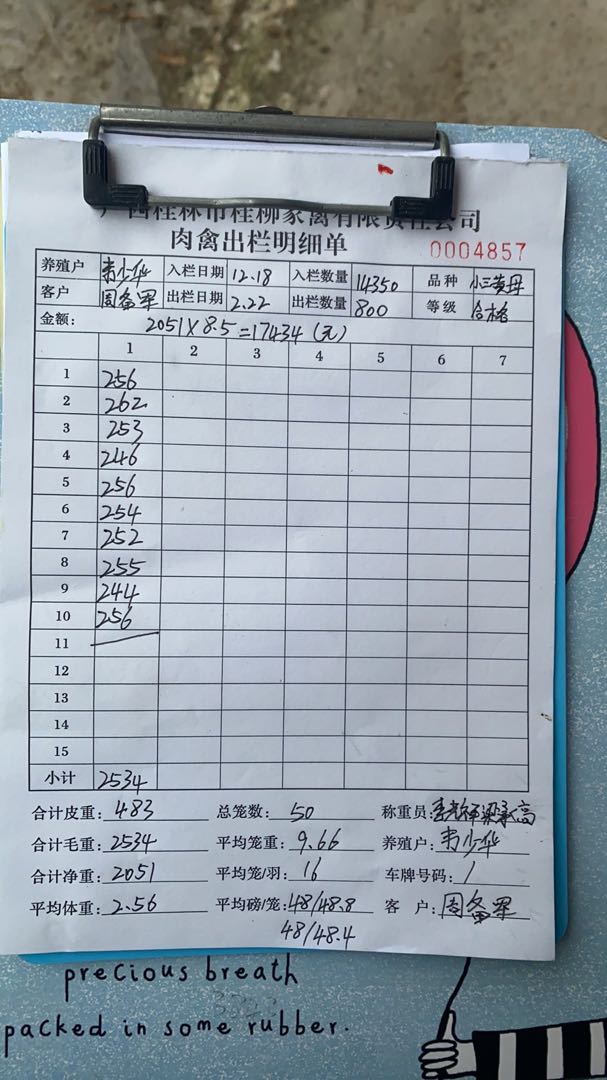 广西桂林市桂柳家禽有限责任公司
肉禽出栏明细单
0004857
养殖户 韦少华 入栏日期 12.18 入栏数量 14350 品种 小三黄母
客户 周备军 出栏日期 2.22 出栏数量 800 等级 合格
金额: 2051×8.5=17434(元)
1 2 3 4 5 6 7
1 256
2 262
3 253
4 246
5 256
6 254
7 252
8 255
9 244
10 256
11
12
13
14
15
小计 2534
合计皮重: 483 总笼数: 50 称重员:
合计毛重: 2534 平均笼重: 9.66 养殖户: 韦少华
合计净重: 2051 平均笼/羽: 16 车牌号码: /
平均体重: 2.56 平均磅/笼: 48/48.8 客 户: 周备军
48/48.4
precious breath
packed in some rubber.